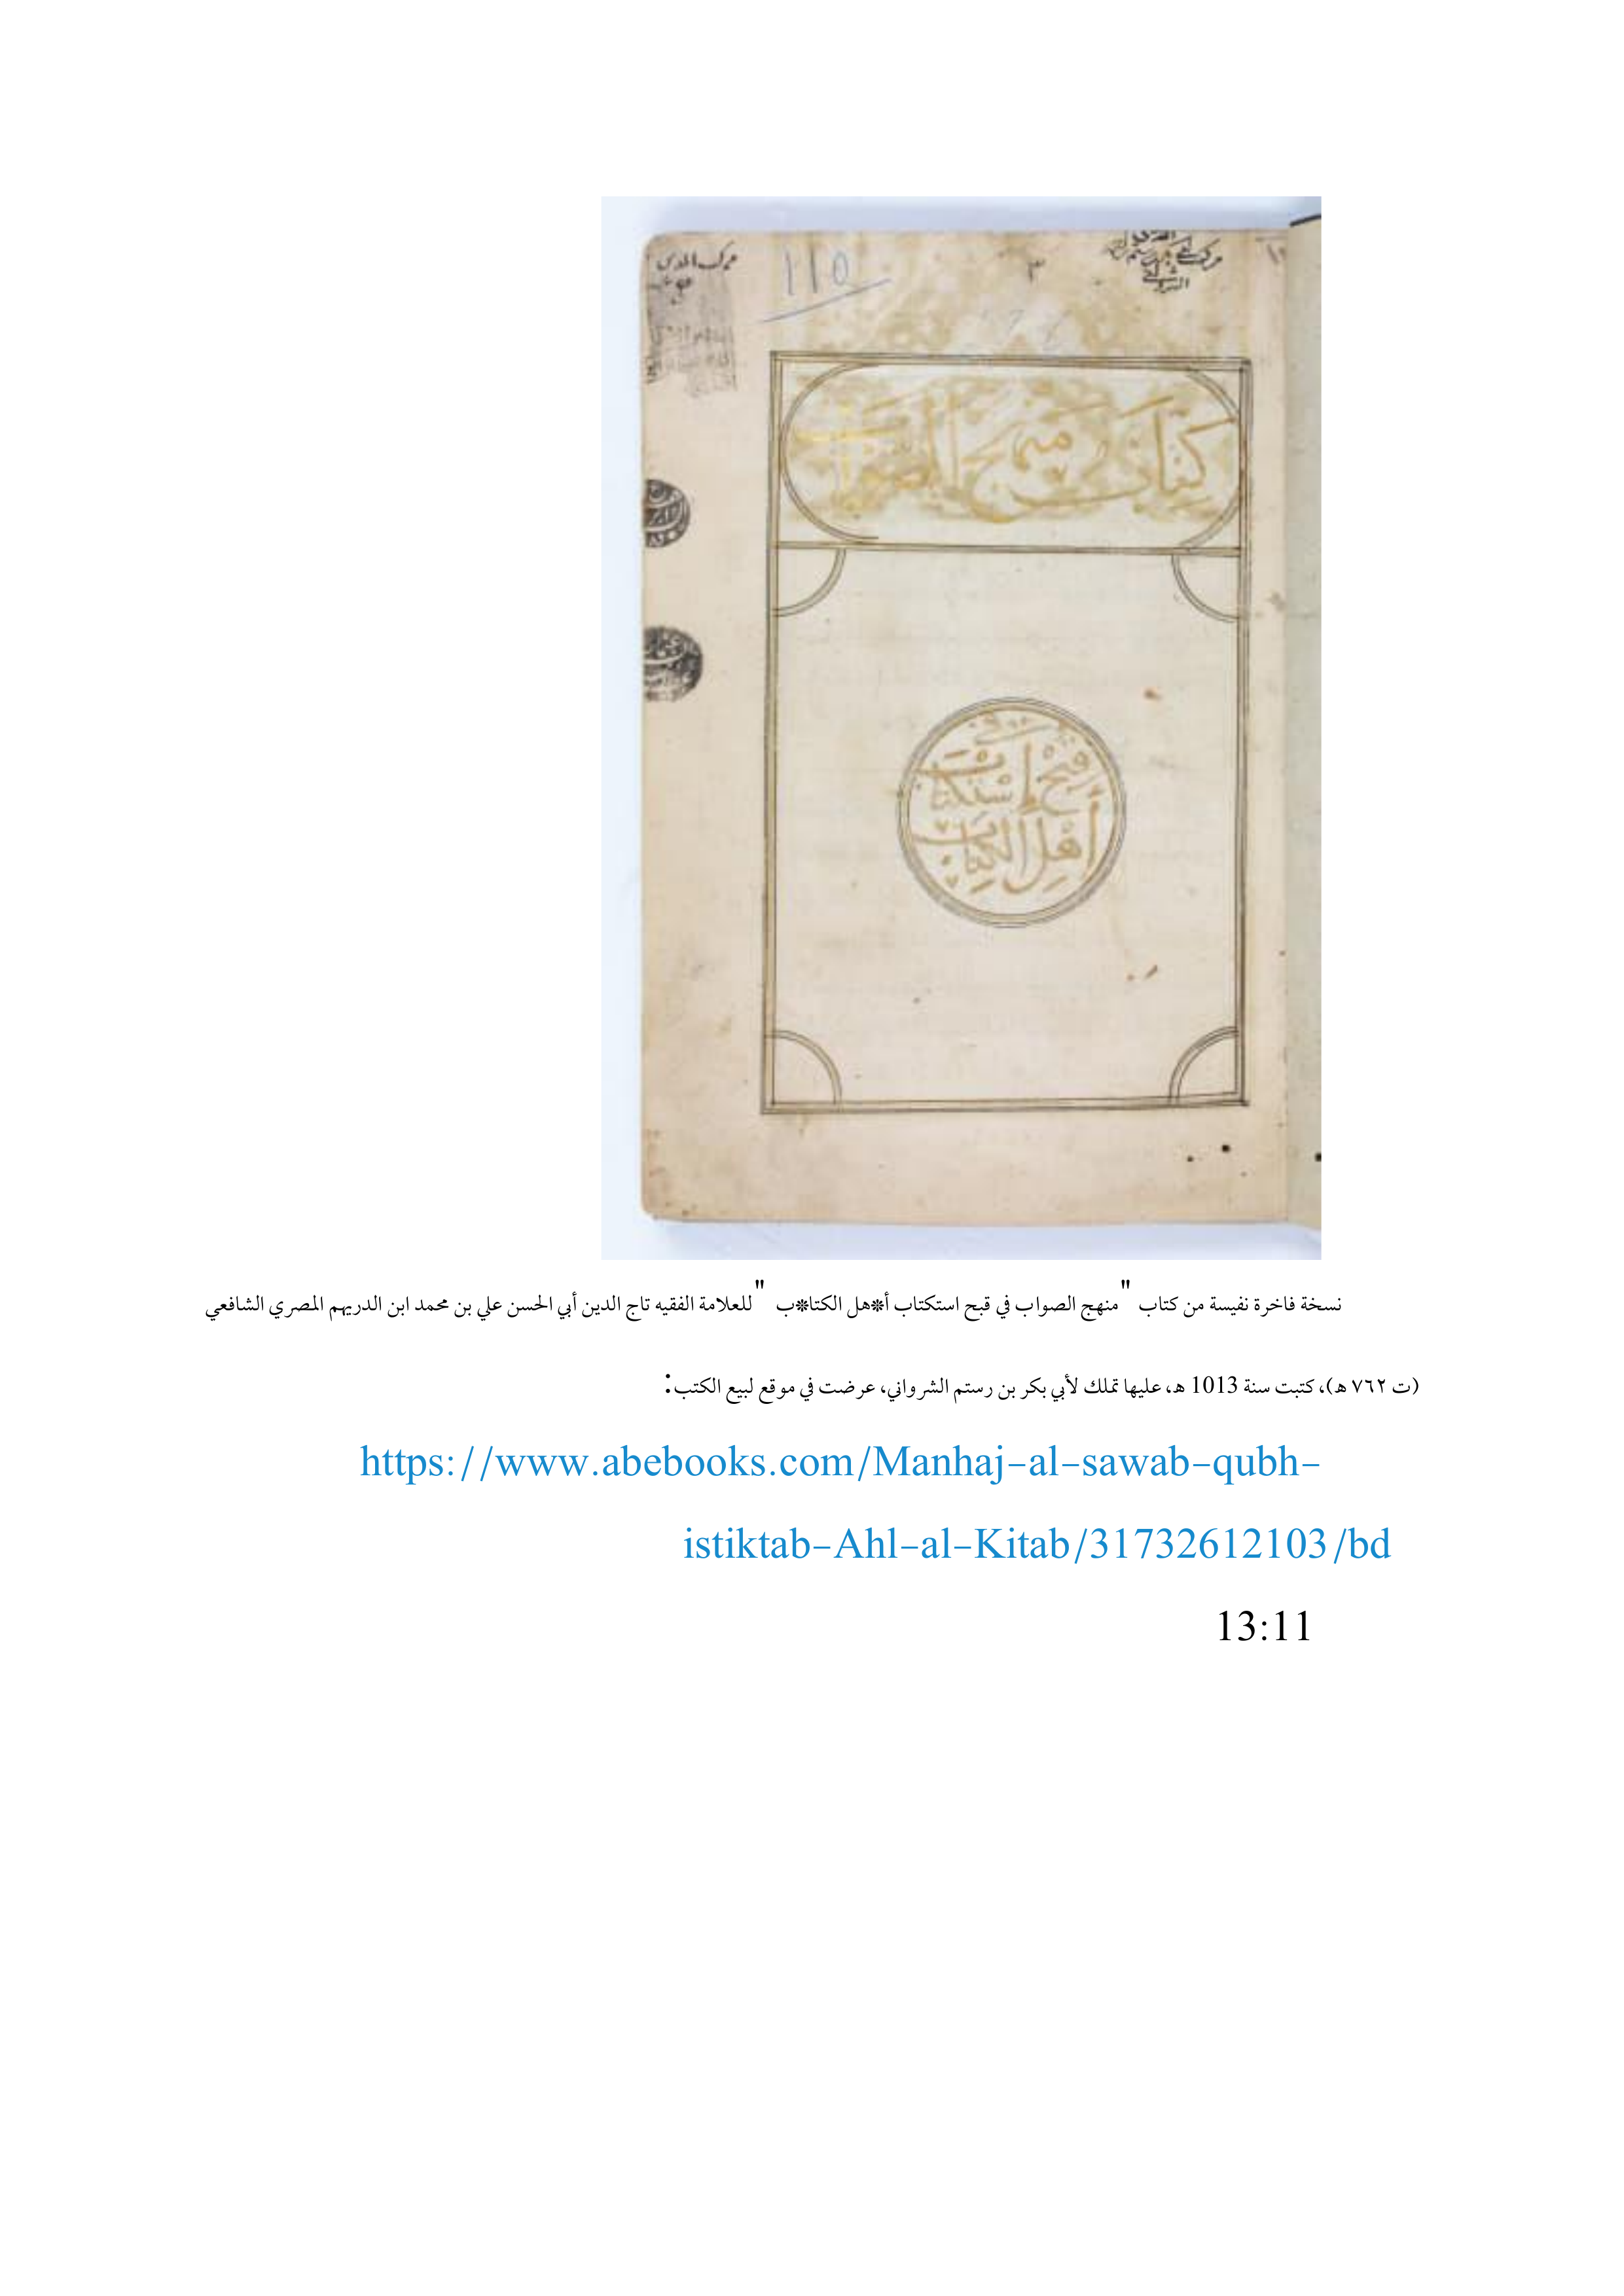 ١١٥
٣
كتاب منهج الصواب
في
قبح استكتاب
أهل الكتاب
نسخة فاخرة نفيسة من كتاب "منهج الصواب في قبح استكتاب أ*هل الكتا*ب " للعلامة الفقيه تاج الدين أبي الحسن علي بن محمد ابن الدريهم المصري الشافعي
(ت ٧٦٢ هـ)، كتبت سنة 1013 هـ، عليها تملك لأبي بكر بن رستم الشرواني، عرضت في موقع لبيع الكتب:
https://www.abebooks.com/Manhaj-al-sawab-qubh-
istiktab-Ahl-al-Kitab/31732612103/bd
13:11